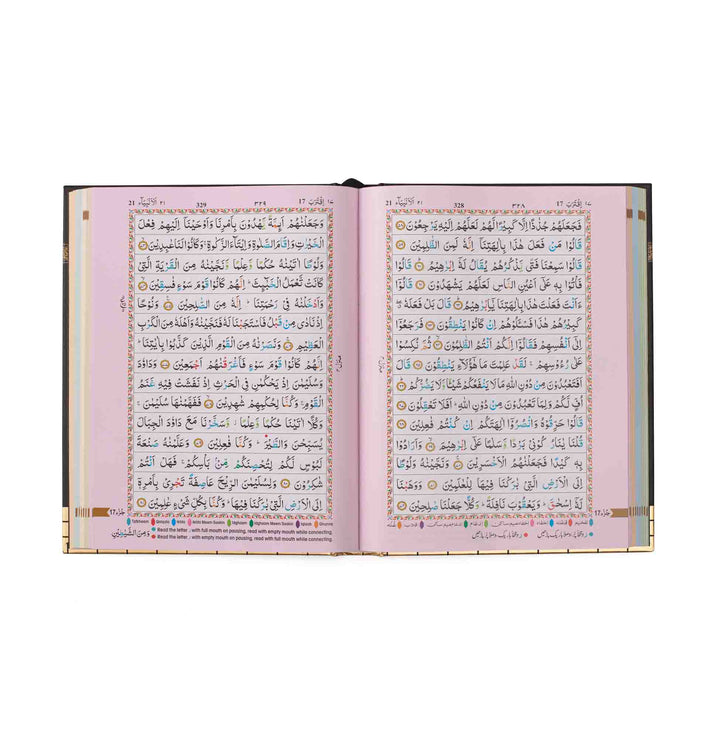 21 اَلْاَنْۢبِيَآء ٢١ 328 ٣٢٨ 17 اِقْتَرَبَ ١٧
فَجَعَلَهُمْ جُذٰذًا اِلَّا كَبِيْرًا لَّهُمْ لَعَلَّهُمْ اِلَيْهِ يَرْجِعُوْنَ
قَالُوْا مَنْ فَعَلَ هٰذَا بِاٰلِهَتِنَاۤ اِنَّهٗ لَمِنَ الظّٰلِمِيْنَ
قَالُوْا سَمِعْنَا فَتًى يَّذْكُرُهُمْ يُقَالُ لَهٗۤ اِبْرٰهِيْمُ قَالُوْا
فَاْتُوْا بِهٖ عَلٰۤى اَعْيُنِ النَّاسِ لَعَلَّهُمْ يَشْهَدُوْنَ قَالُوْۤا
ءَاَنْتَ فَعَلْتَ هٰذَا بِاٰلِهَتِنَا يٰۤاِبْرٰهِيْمُ قَالَ بَلْ فَعَلَهٗ
كَبِيْرُهُمْ هٰذَا فَسْـَٔلُوْهُمْ اِنْ كَانُوْا يَنْطِقُوْنَ فَرَجَعُوْۤا
اِلٰۤى اَنْفُسِهِمْ فَقَالُوْۤا اِنَّكُمْ اَنْتُمُ الظّٰلِمُوْنَ ثُمَّ نُكِسُوْا
عَلٰى رُءُوْسِهِمْ لَقَدْ عَلِمْتَ مَا هٰۤؤُلَآءِ يَنْطِقُوْنَ قَالَ
اَفَتَعْبُدُوْنَ مِنْ دُوْنِ اللّٰهِ مَا لَا يَنْفَعُكُمْ شَيْـًٔا وَّلَا يَضُرُّكُمْ
اُفٍّ لَّكُمْ وَلِمَا تَعْبُدُوْنَ مِنْ دُوْنِ اللّٰهِ اَفَلَا تَعْقِلُوْنَ
قَالُوْا حَرِّقُوْهُ وَانْصُرُوْۤا اٰلِهَتَكُمْ اِنْ كُنْتُمْ فٰعِلِيْنَ
قُلْنَا يٰنَارُ كُوْنِيْ بَرْدًا وَّسَلٰمًا عَلٰۤى اِبْرٰهِيْمَ وَاَرَادُوْا
بِهٖ كَيْدًا فَجَعَلْنٰهُمُ الْاَخْسَرِيْنَ وَنَجَّيْنٰهُ وَلُوْطًا
اِلَى الْاَرْضِ الَّتِيْ بٰرَكْنَا فِيْهَا لِلْعٰلَمِيْنَ وَوَهَبْنَا
لَهٗۤ اِسْحٰقَ وَيَعْقُوْبَ نَافِلَةً وَكُلًّا جَعَلْنَا صٰلِحِيْنَ
21 اَلْاَنْۢبِيَآء ٢١ 329 ٣٢٩ 17 اِقْتَرَبَ ١٧
وَجَعَلْنٰهُمْ اَئِمَّةً يَّهْدُوْنَ بِاَمْرِنَا وَاَوْحَيْنَاۤ اِلَيْهِمْ فِعْلَ
الْخَيْرٰتِ وَاِقَامَ الصَّلٰوةِ وَاِيْتَآءَ الزَّكٰوةِ وَكَانُوْا لَنَا عٰبِدِيْنَ
وَلُوْطًا اٰتَيْنٰهُ حُكْمًا وَّعِلْمًا وَّنَجَّيْنٰهُ مِنَ الْقَرْيَةِ الَّتِيْ
كَانَتْ تَّعْمَلُ الْخَبٰٓئِثَ اِنَّهُمْ كَانُوْا قَوْمَ سَوْءٍ فٰسِقِيْنَ
وَاَدْخَلْنٰهُ فِيْ رَحْمَتِنَا اِنَّهٗ مِنَ الصّٰلِحِيْنَ وَنُوْحًا
اِذْ نَادٰى مِنْ قَبْلُ فَاسْتَجَبْنَا لَهٗ فَنَجَّيْنٰهُ وَاَهْلَهٗ مِنَ الْكَرْبِ
الْعَظِيْمِ وَنَصَرْنٰهُ مِنَ الْقَوْمِ الَّذِيْنَ كَذَّبُوْا بِاٰيٰتِنَا
اِنَّهُمْ كَانُوْا قَوْمَ سَوْءٍ فَاَغْرَقْنٰهُمْ اَجْمَعِيْنَ وَدَاوٗدَ
وَسُلَيْمٰنَ اِذْ يَحْكُمٰنِ فِي الْحَرْثِ اِذْ نَفَشَتْ فِيْهِ غَنَمُ
الْقَوْمِ وَكُنَّا لِحُكْمِهِمْ شٰهِدِيْنَ فَفَهَّمْنٰهَا سُلَيْمٰنَ
وَكُلًّا اٰتَيْنَا حُكْمًا وَّعِلْمًا وَّسَخَّرْنَا مَعَ دَاوٗدَ الْجِبَالَ
يُسَبِّحْنَ وَالطَّيْرَ وَكُنَّا فٰعِلِيْنَ وَعَلَّمْنٰهُ صَنْعَةَ
لَبُوْسٍ لَّكُمْ لِتُحْصِنَكُمْ مِّنْۢ بَاْسِكُمْ فَهَلْ اَنْتُمْ
شٰكِرُوْنَ وَلِسُلَيْمٰنَ الرِّيْحَ عَاصِفَةً تَجْرِيْ بِاَمْرِهٖۤ
اِلَى الْاَرْضِ الَّتِيْ بٰرَكْنَا فِيْهَا وَكُنَّا بِكُلِّ شَيْءٍ عٰلِمِيْنَ
Tafkheem Qalqala Ikhfa Ikhfa Meem Saakin Idgham Idghaam Meem Saakin Qalb Ghunna
Read the letter ر with full mouth on pausing, read with empty mouth while connecting.
Read the letter ر with empty mouth on pausing, read with full mouth while connecting.
وَمِنَ الشَّيٰطِيْنِ